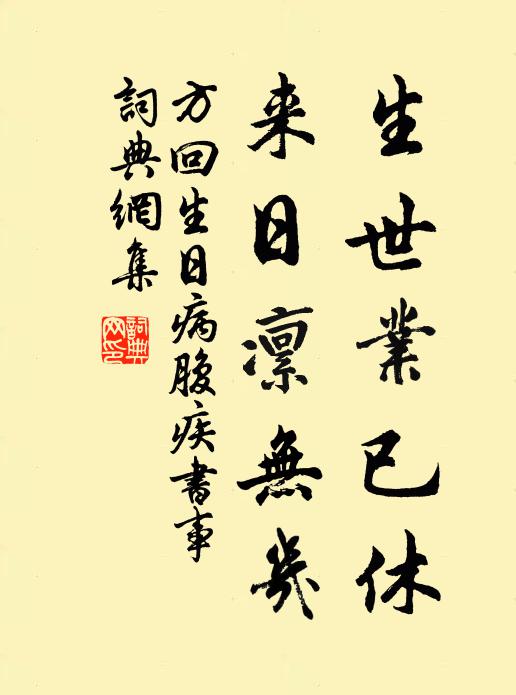 生世業已休
來日凛無幾
方回生日病腹疾書事
詞典網集
詞典
网印